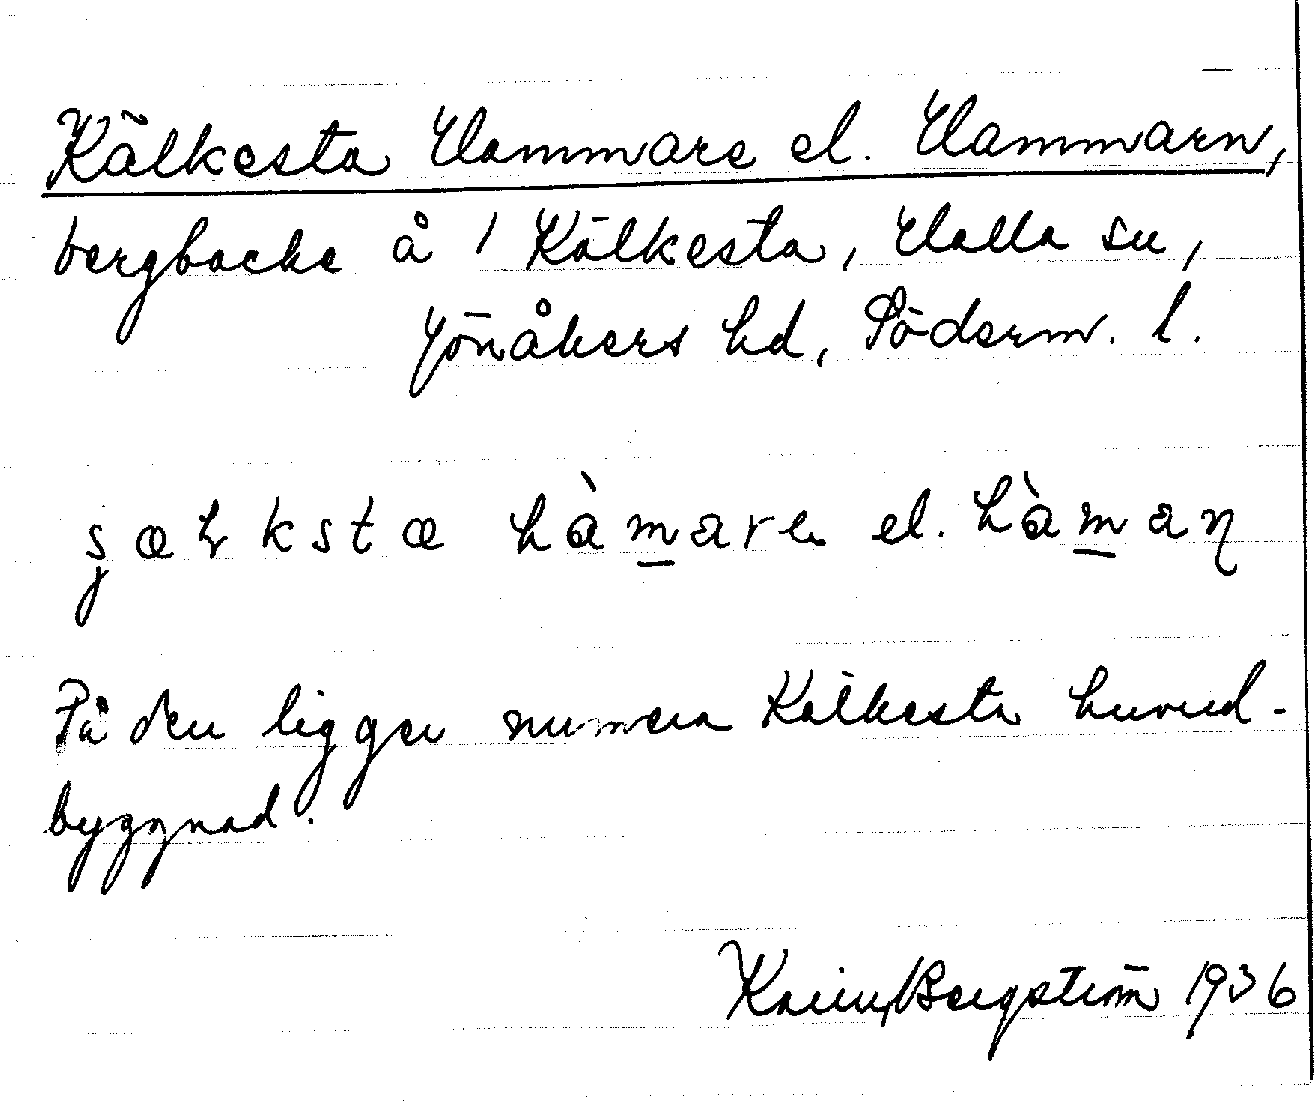 Kälkesta Hammare el. Hammarn,
bergbacke å 1 Kälkesta, Halla sn,
Jönåkers hd, Söderm. l.
hàmare el. hàmaɳ
På den ligger numera Kälkesta huvud-
byggnad.
Karin Bergström 1936